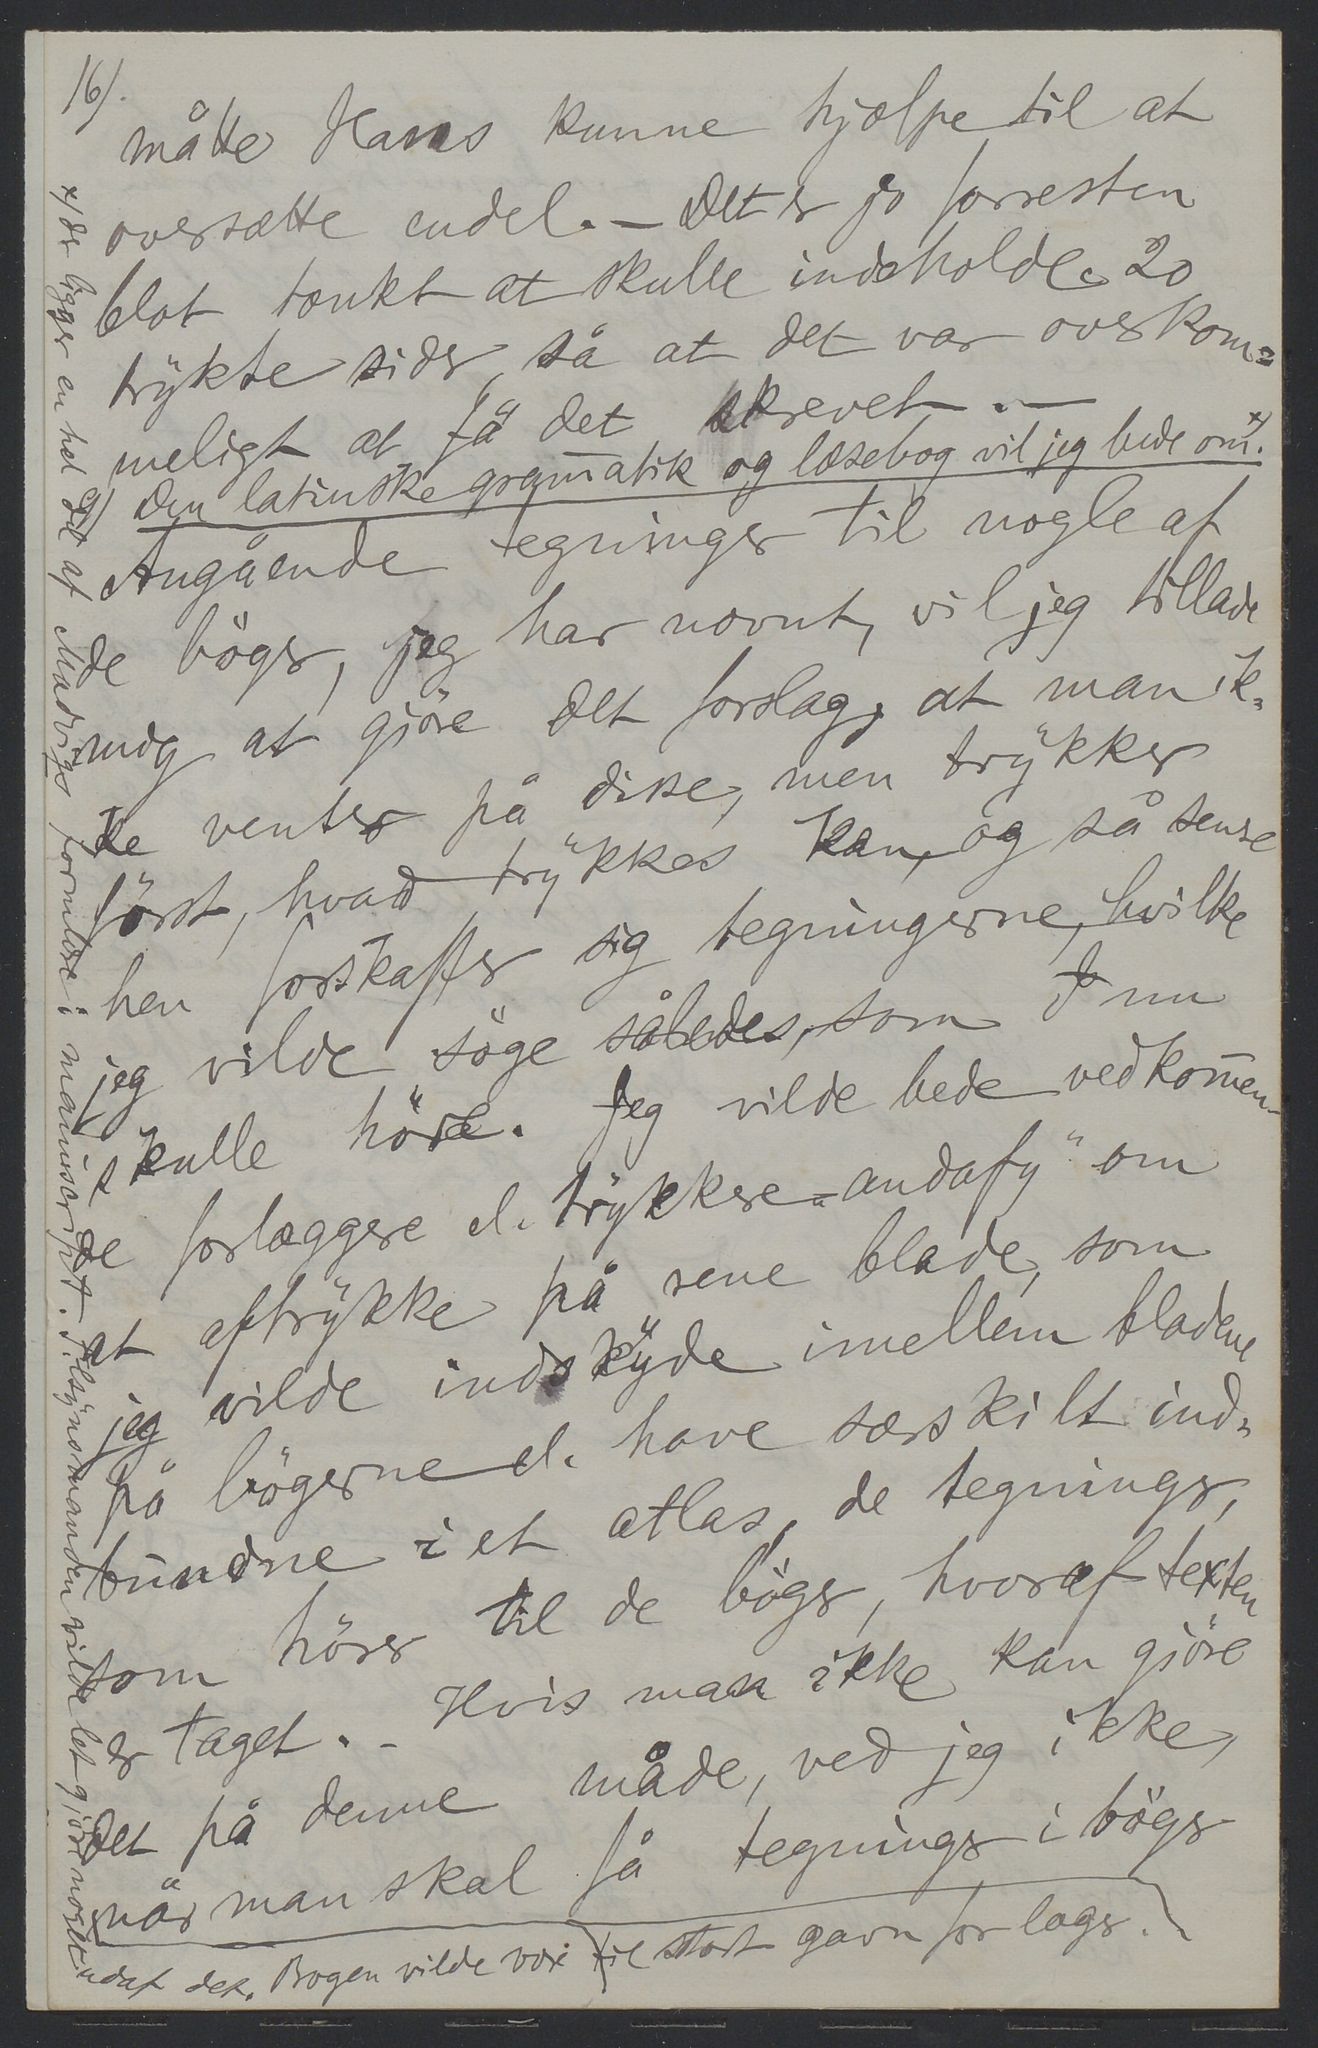 16/.
måtte Hans kunne hjælpe til at
oversætte endel. — Det er jo forresten
blot tænkt at skulle indeholde 20
trÿkte sider, så at det var overkom=
meligt at få det skrevet. —
Den latinske gram̅atik og læsebog vil jeg bede om x).
Angående tegninger til nogle af
de böger, jeg har nævnt, vil jeg tillade
mig at gjöre det forslag, at man ik=
ke venter på disse, men trÿkker
först, hvad trÿkkes kan, og så senere
hen forskaffer sig tegningerne, hvilke
jeg vilde söge således, som I nu
skulle höre. Jeg vilde bede vedkom̅en-
de forlæggere el. trÿkkere "andafÿ" om
at aftrÿkke på rene blade, som
jeg vilde indskÿde imellem bladene
på bögerne el. have særskilt ind=
bundne i et atlas, de tegninger,
som hörer til de böger, hvoraf texten
er taget. - Hvis man ikke kan gjöre
det på denne måde, ved jeg ikke,
når man skal få tegninger i böger
x/ der ligger en hel del af Madvigs formlære i manuscript. Tilsÿnsmanden vilde let gjöre noget
udaf det. Bogen vilde være til stort gavn for læger.